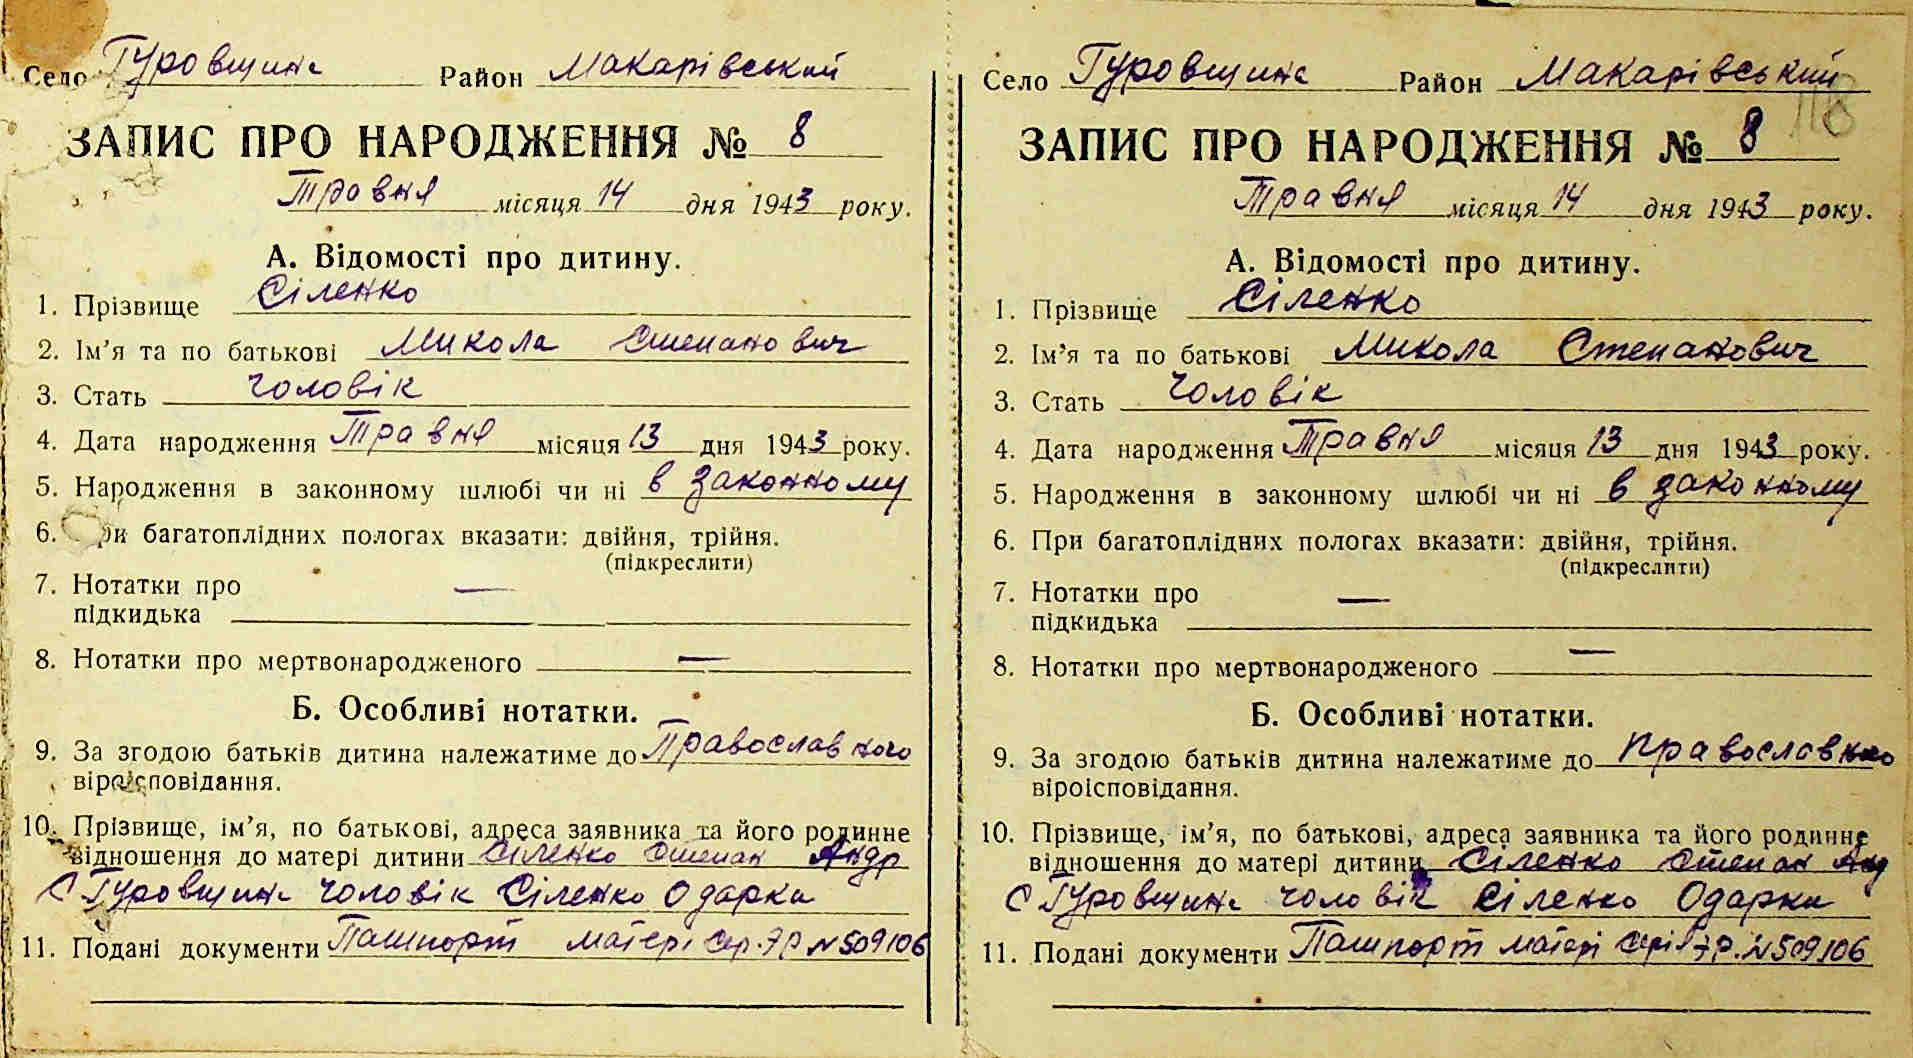 Село Гуровщина Район Макарівський
ЗАПИС ПРО НАРОДЖЕННЯ № 8
Травня місяця 14 дня 1943 року.
А. Відомості про дитину.
1. Прізвище Сіленко
2. Ім’я та по батькові Микола Степанович
3. Стать Чоловік
4. Дата народження Травня місяця 13 дня 1943 року.
5. Народження в законному шлюбі чи ні в законному
6. При багатоплідних пологах вказати: двійня, трійня.
(підкреслити)
7. Нотатки про —
підкидька
8. Нотатки про мертвонародженого —
Б. Особливі нотатки.
9. За згодою батьків дитина належатиме до Православного
віроісповідання.
10. Прізвище, ім’я, по батькові, адреса заявника та його родинне
відношення до матері дитини Сіленко Степан Андр
с Гуровщина чоловік Сіленко Одарки
11. Подані документи Пашпорт матері Сер. ЭР N 509106
Село Гуровщина Район Макарівський
118
ЗАПИС ПРО НАРОДЖЕННЯ № 8
Травня місяця 14 дня 1943 року.
А. Відомості про дитину.
1. Прізвище Сіленко
2. Ім’я та по батькові Микола Степанович
3. Стать Чоловік
4. Дата народження Травня місяця 13 дня 1943 року.
5. Народження в законному шлюбі чи ні в законному
6. При багатоплідних пологах вказати: двійня, трійня.
(підкреслити)
7. Нотатки про —
підкидька
8. Нотатки про мертвонародженого —
Б. Особливі нотатки.
9. За згодою батьків дитина належатиме до Православного
віроісповідання.
10. Прізвище, ім’я, по батькові, адреса заявника та його родинне
відношення до матері дитини Сіленко Степан Анд
с Гуровщина чоловік Сіленко Одарки
11. Подані документи Пашпорт матері Серія ЭР. N 509106